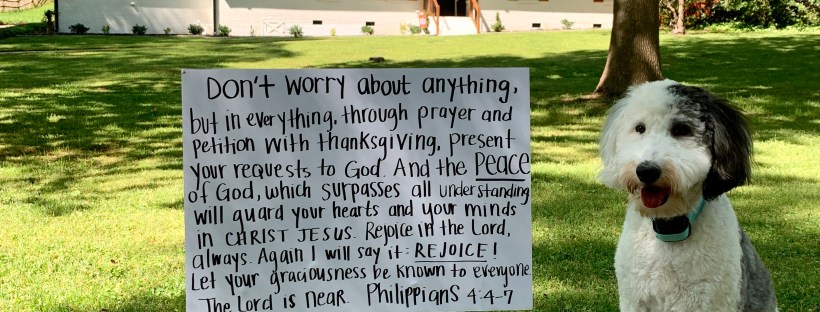 Don't worry about anything,
but in everything, through prayer and
petition with thanksgiving, present
your requests to God. And the PEACE
of God, which surpasses all understanding
will guard your hearts and your minds
in CHRIST JESUS. Rejoice in the Lord,
always. Again I will say it: REJOICE!
Let your graciousness be known to everyone.
The Lord is near. Philippians 4:4-7